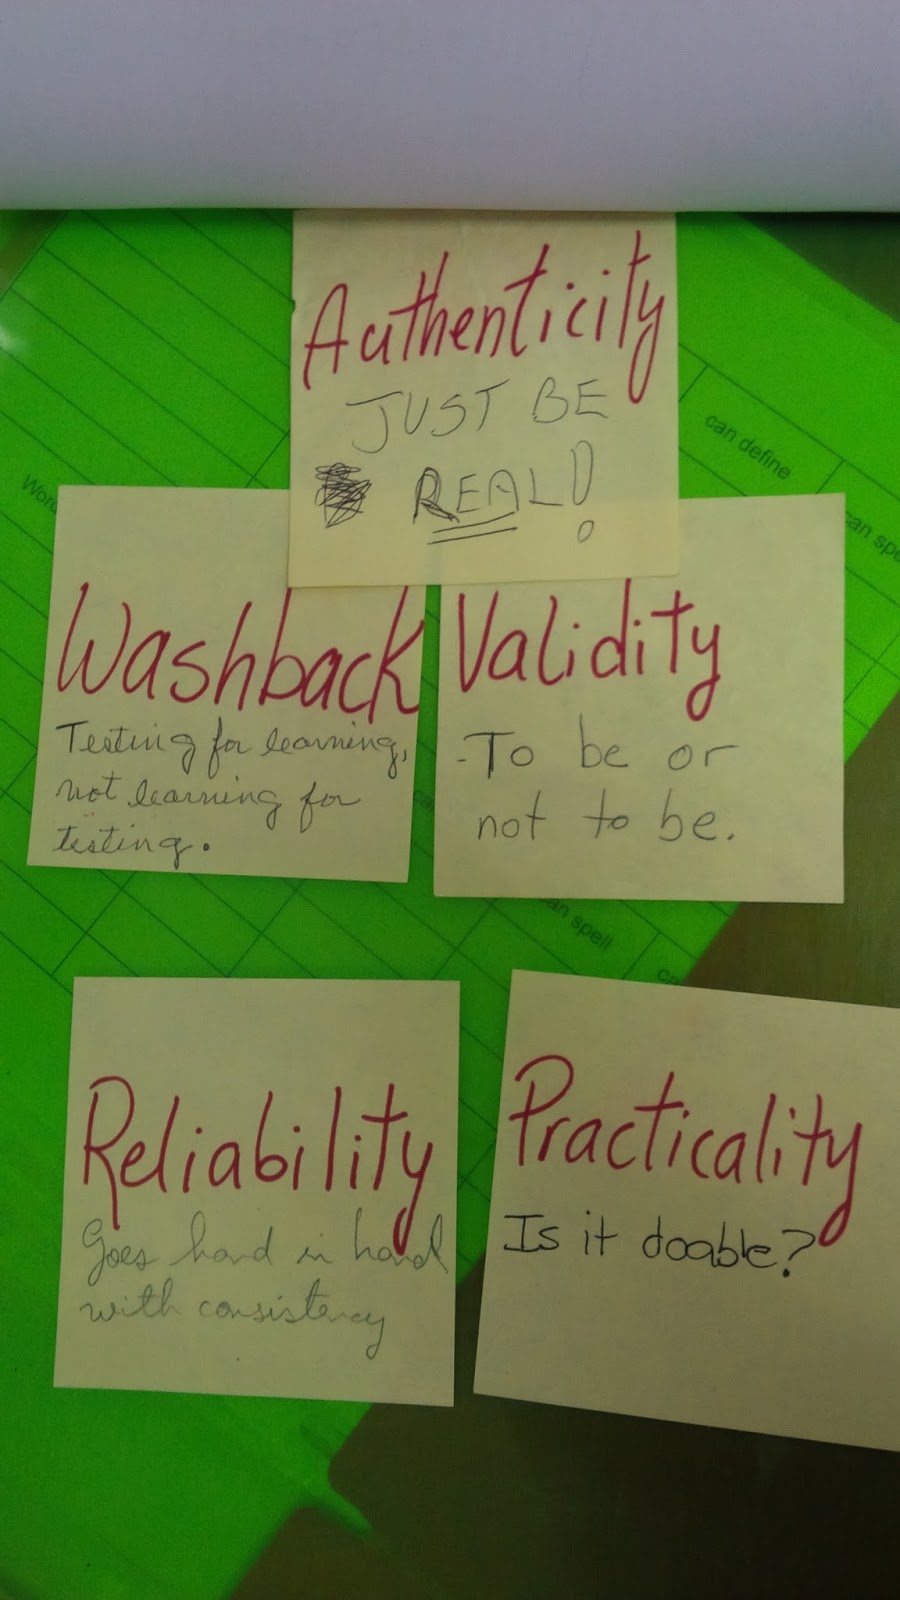 Authenticity
JUST BE
REAL!
can define
can spe
Word
Washback
Testing for learning,
not learning for
testing.
Validity
-To be or
not to be.
can spell
ca
Reliability
Goes hand in hand
with consistency
Practicality
Is it doable?